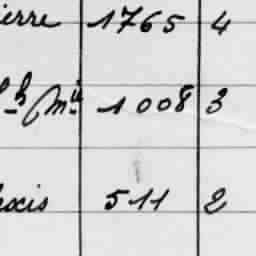 ierre 1765 4
h Mie 1008 3
exis 511 2